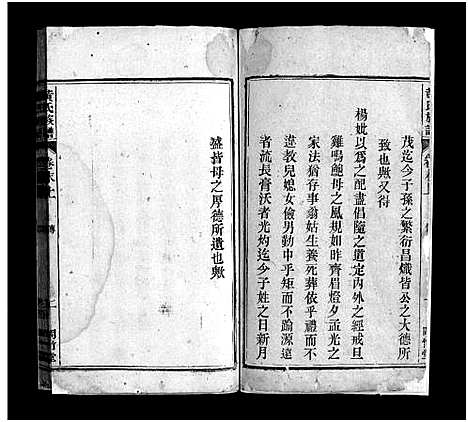 茂迄今子孫之繁衍昌熾皆公之大德所
致也歟又得
楊妣以爲之配盡倡隨之道定內外之經戒旦
雞鳴鮑母之風規如昨齊眉燈夕孟光之
家法猶存事翁姑生養死葬依乎禮而不
違教兒媳女儉男勤中乎矩而不踰源遠
者流長膏沃者光灼迄今子姓之日新月
盛皆母之厚德所遺也歟
黃氏族譜
卷末上
傳
二